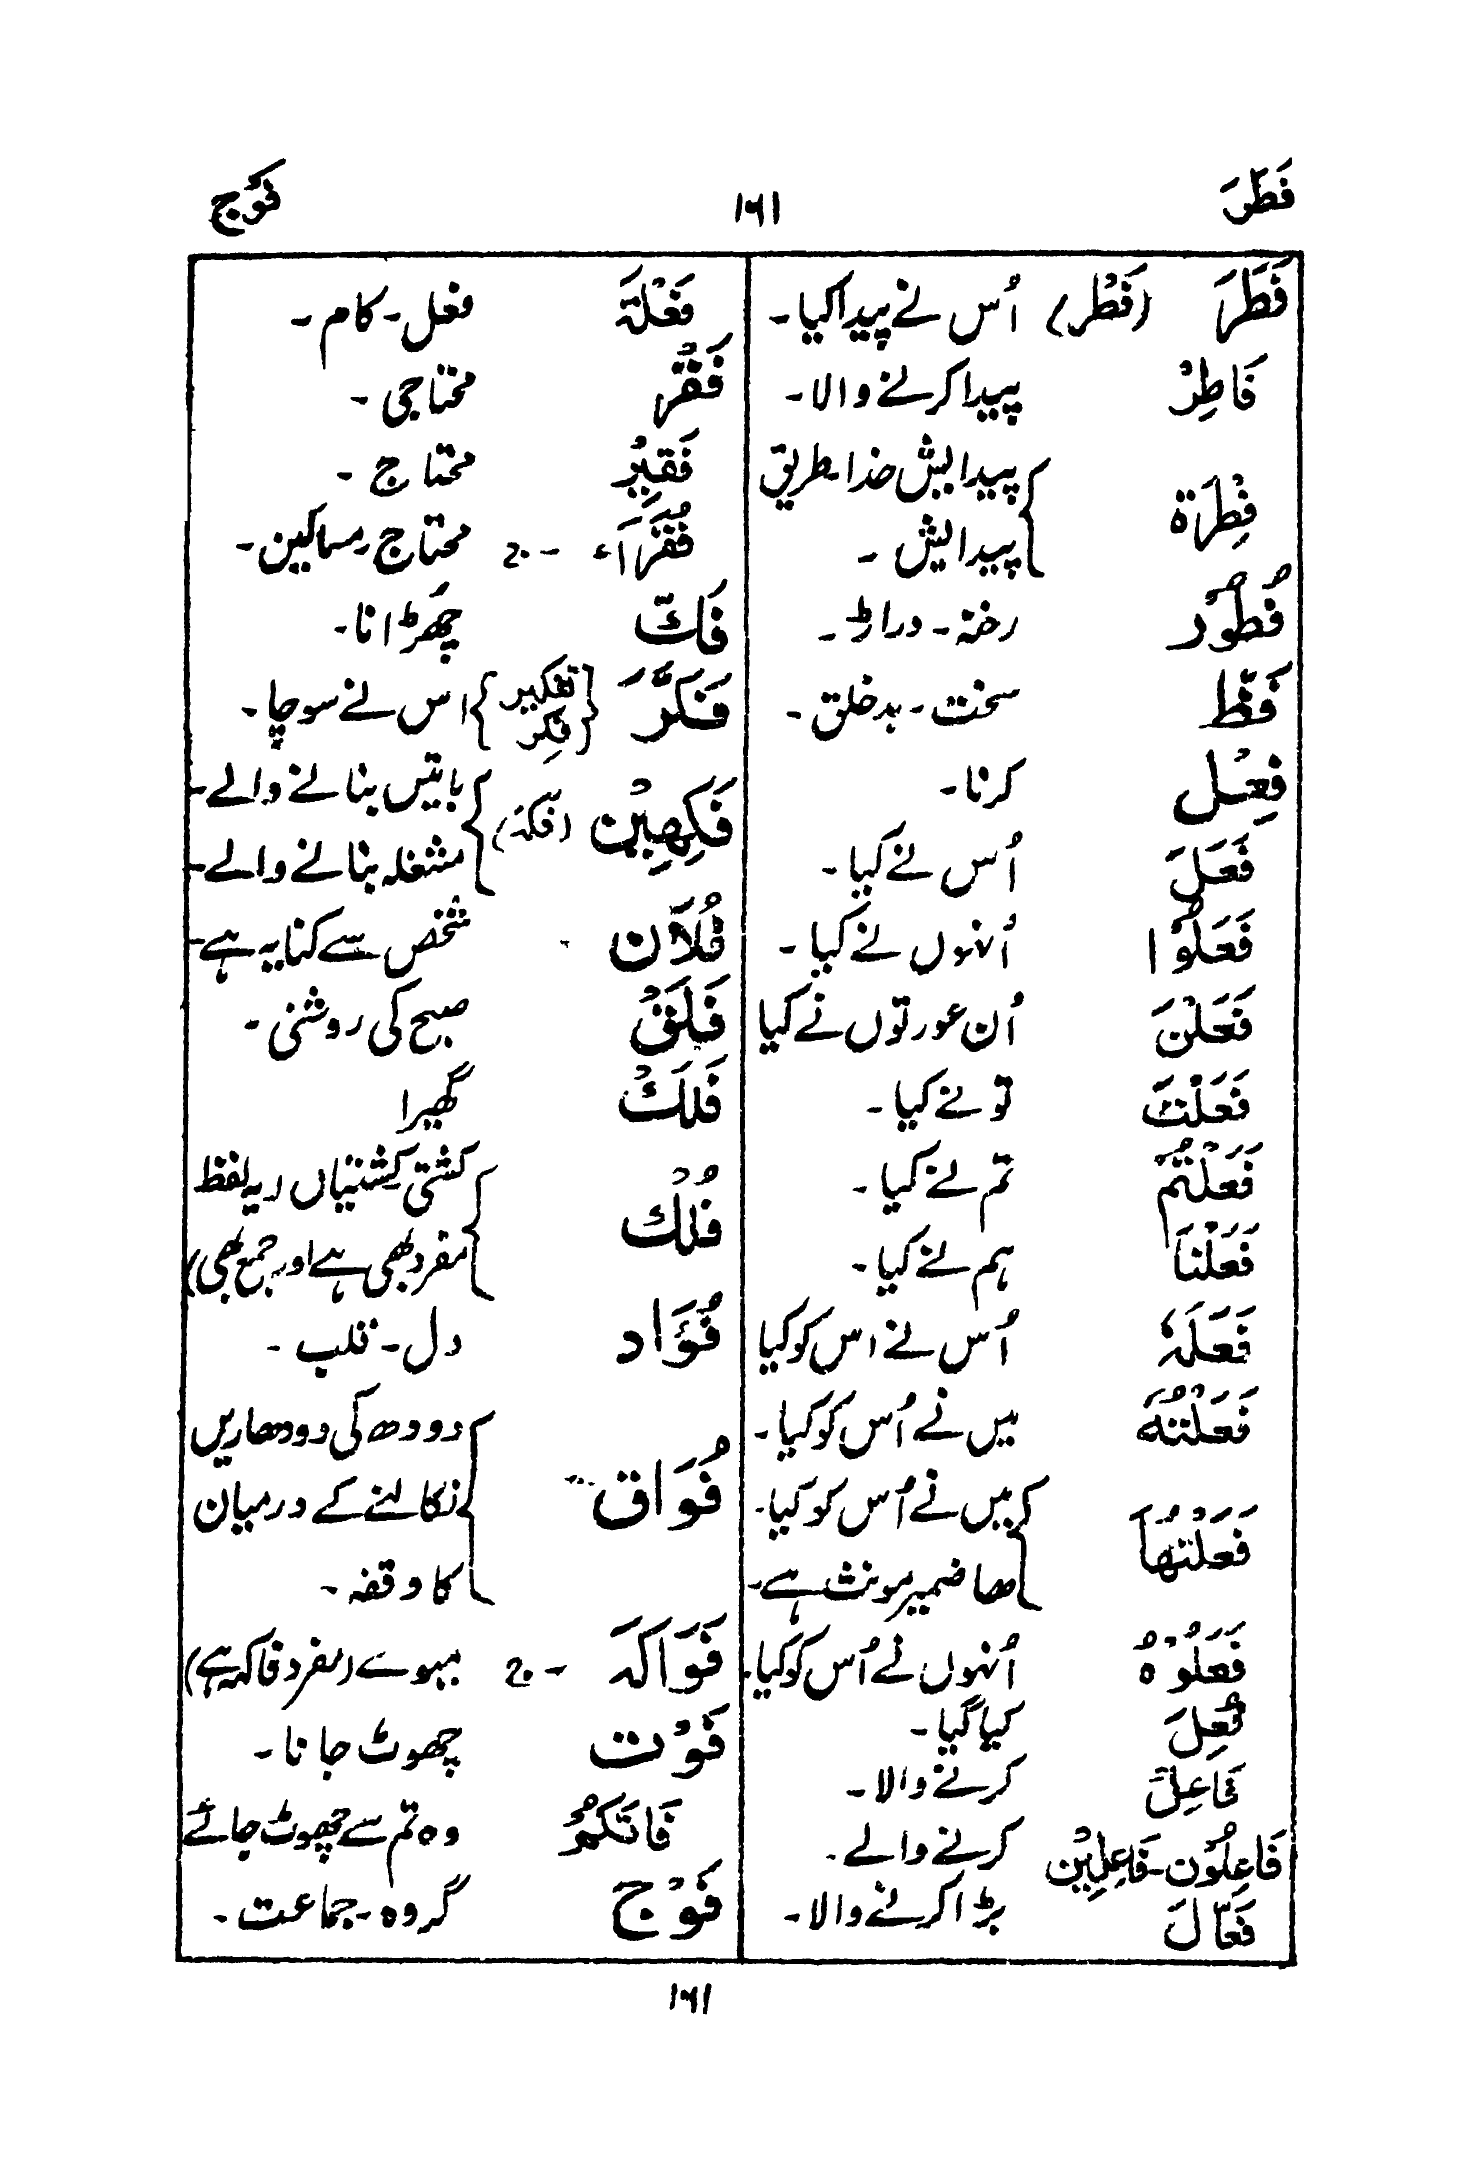 فَطَرَ ۱۶۱ فَوْج
فَطَرَ (فَطْر) اُس نے پیدا کیا۔
فَاطِرْ پیدا کرنے والا۔
فِطْرَة پیدایش خدا طریق
پیدایش ۔
فُطُوْر رخنہ ۔ دراڑ ۔
فَظّ سخت ۔ بد خلق ۔
فِعْل کرنا ۔
فَعَلَ اُس نے کیا ۔
فَعَلُوْا اُنہوں نے کیا ۔
فَعَلْنَ اُن عورتوں نے کیا
فَعَلْتَ تو نے کیا ۔
فَعَلْتُمْ تم نے کیا ۔
فَعَلْنَا ہم نے کیا ۔
فَعَلَهٗ اُس نے اس کو کیا
فَعَلْتُهٗ میں نے اُس کو کیا ۔
فَعَلْتُهَا میں نے اُس کو کیا ۔
ھا ضمیر مونث ہے ۔
فَعَلُوْهُ اُنہوں نے اُس کو کیا ۔
فُعِلَ کیا گیا ۔
فَاعِلْ کرنے والا ۔
فَاعِلُوْن ۔ فَاعِلِيْن کرنے والے ۔
فَعَّالَ بڑا کرنے والا ۔
فَعْلَة فعل ۔ کام ۔
فَقْر محتاجی ۔
فَقِيْر محتاج ۔
فُقَرَاء ۔ ج محتاج ۔ مساکین ۔
فَاكّ چھڑانا ۔
فَكَّرَ {تفکیر فکر} اس نے سوچا ۔
فَكِهِيْن (فکہ) باتیں بنانے والے ۔
مشغلہ بنانے والے ۔
فُلَان شخص سے کنایہ ہے ۔
فَلَقْ صبح کی روشنی ۔
فَلَكْ گھیرا
فُلْك کشتی کشتیاں (یہ لفظ
مفرد بھی ہے اور جمع بھی)
فُؤَاد دل ۔ قلب ۔
فُوَاق دودھ کی دو دھاریں
نکالنے کے درمیان
کا وقفہ ۔
فَوَاكَه ۔ ج میوے (مفرد فاکہہ ہے)
فَوْت چھوٹ جانا ۔
فَاتَكُمْ وہ تم سے چھوٹ جائے
فَوْج گروہ ۔ جماعت ۔
۱۶۱